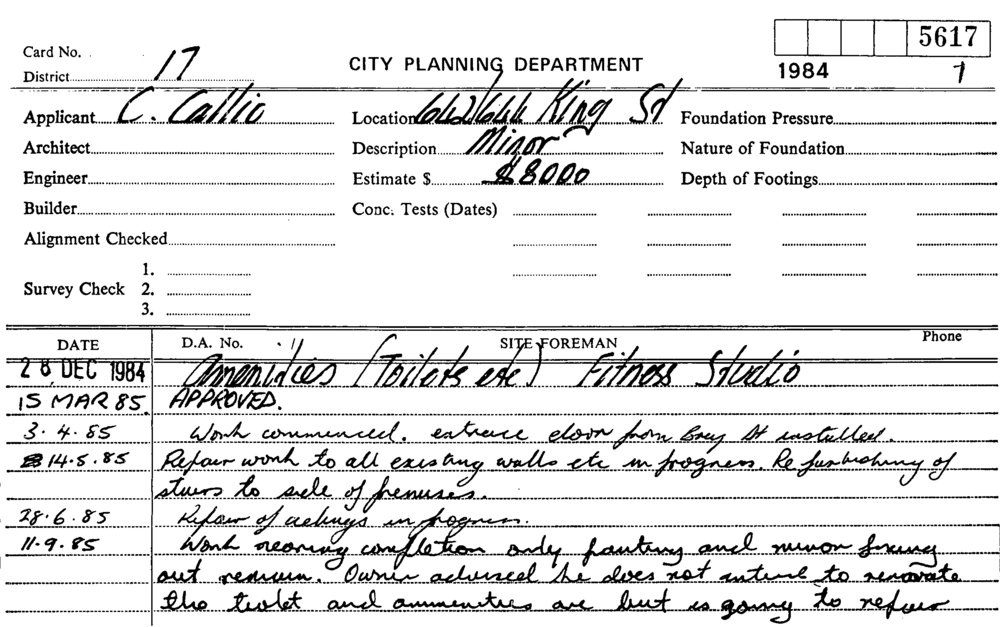 5617
Card No.
District 17
CITY PLANNING DEPARTMENT
1984 7
Applicant C. Callio Location 642/644 King St Foundation Pressure
Architect Description Minor Nature of Foundation
Engineer Estimate $ $8000 Depth of Footings
Builder Conc. Tests (Dates)
Alignment Checked
1.
Survey Check 2.
3.
DATE D.A. No. SITE FOREMAN Phone
28 DEC 1984 Amenities (Toilets etc) Fitness Studio
15 MAR 85. APPROVED.
3.4.85 Work commenced. entrance door from Bray St installed.
14.5.85 Repair work to all existing walls etc in progress. Refurbishing of
stairs to side of premises.
28.6.85 Repair of ceilings in progress.
11.9.85 Work nearing completion only painting and minor fixing
out remain. Owner advised he does not intend to renovate
the toilet and ammenities are but is going to repair